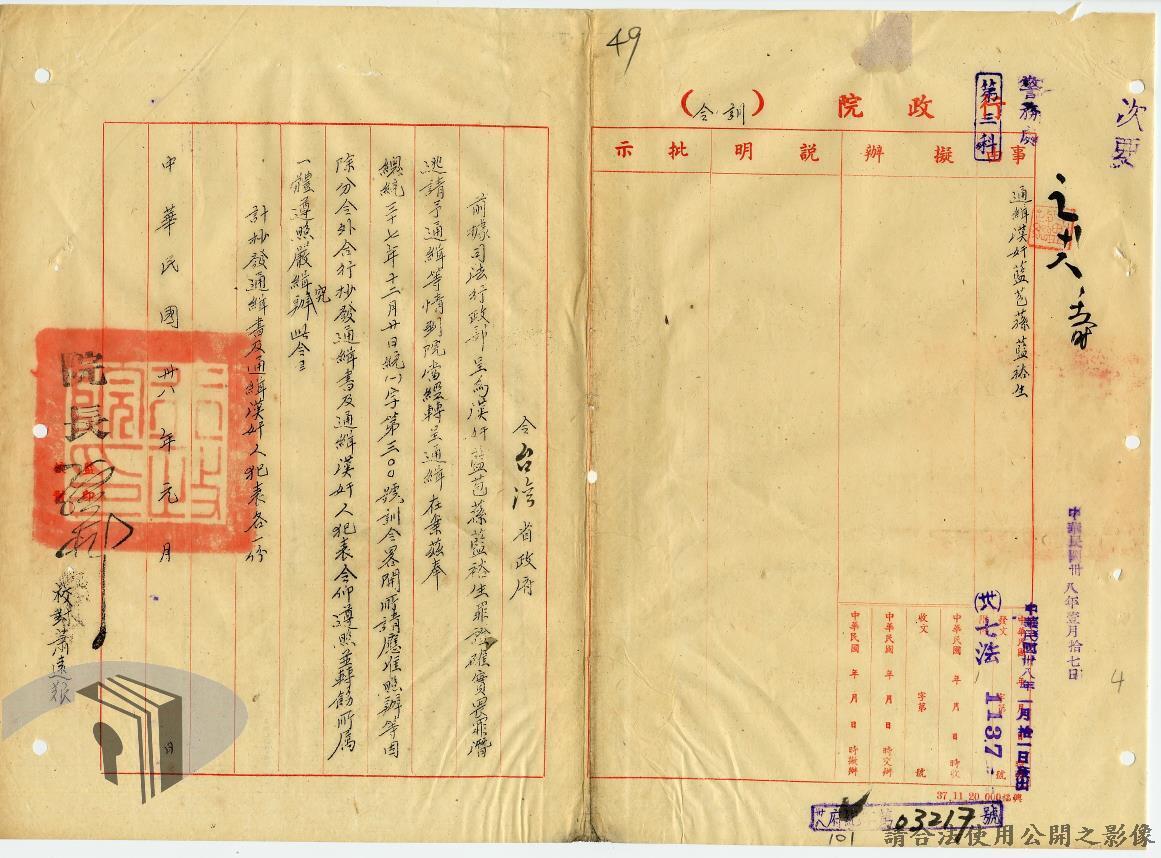 49
行政院（訓令）
警務處
第三科
次要
事由
擬辦
說明
批示
通緝漢奸藍芭蓀藍裕生
中華民國卅八年壹月拾七日
中華民國卅八年一月拾一日發出
發文 字第 號
卅七法 1137
中華民國 年 月 日 時收
收文 字第 號
中華民國 年 月 日 時交辦
中華民國 年 月 日 時擬辦
37.11.20.000
03217號
101
4
令台灣省政府
前據司法行政部呈為漢奸藍芭蓀藍裕生罪證確實畏罪潛
逃請予通緝等情到院當經轉呈通緝在案茲奉
總統三十七年十二月廿日統(一)字第三〇〇號訓令畧開所請應准照辦等因
除分令外合行抄發通緝書及通緝漢奸人犯表令仰遵照並轉飭所屬
一體遵照嚴緝究辦此令
計抄發通緝書及通緝漢奸人犯表各一份
中華民國卅八年元月 日
院長
校對蕭遠
請合法使用公開之影像